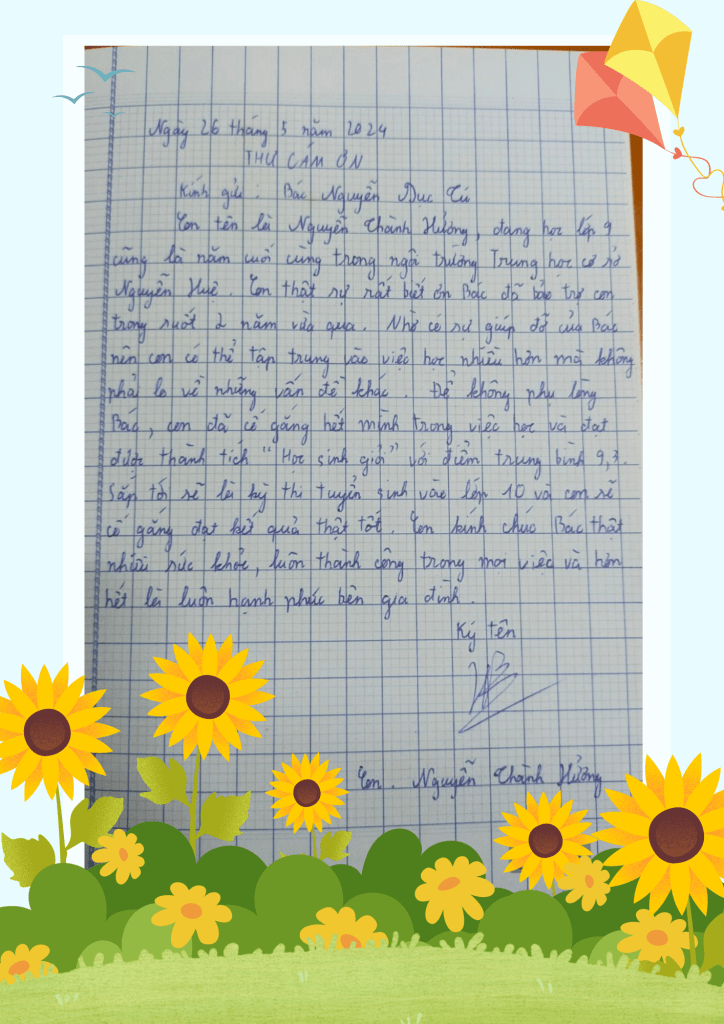 Ngày 26 tháng 5 năm 2024
THƯ CẢM ƠN
Kính gửi : Bác Nguyễn Đức Tú
Con tên là Nguyễn Thành Hưởng, đang học lớp 9
cũng là năm cuối cùng trong ngôi trường Trung học cơ sở
Nguyễn Huệ. Con thật sự rất biết ơn Bác đã bảo trợ con
trong suốt 2 năm vừa qua. Nhờ có sự giúp đỡ của Bác
nên con có thể tập trung vào việc học nhiều hơn mà không
phải lo về những vấn đề khác. Để không phụ lòng
Bác, con đã cố gắng hết mình trong việc học và đạt
được thành tích "Học sinh giỏi" với điểm trung bình 9,3.
Sắp tới sẽ là kỳ thi tuyển sinh vào lớp 10 và con sẽ
cố gắng đạt kết quả thật tốt. Con kính chúc Bác thật
nhiều sức khỏe, luôn thành công trong mọi việc và hơn
hết là luôn hạnh phúc bên gia đình.
Ký tên
Con. Nguyễn Thành Hưởng